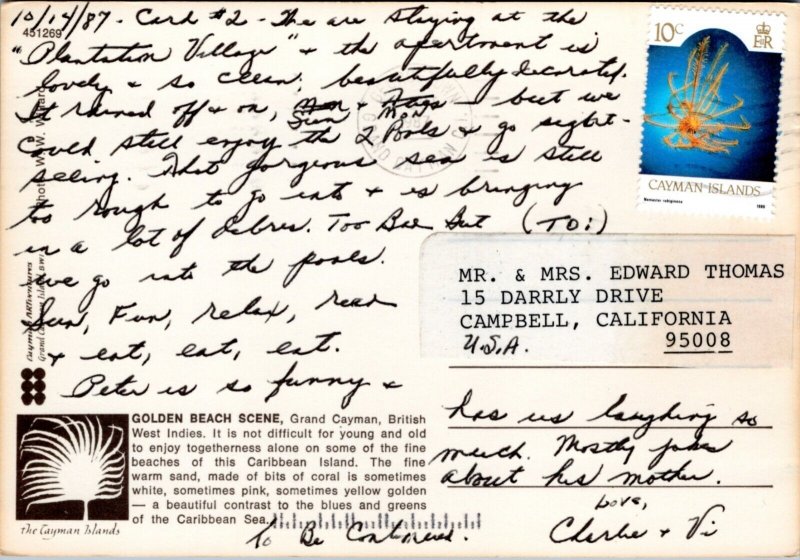 10/14/87. Card #2 - The are staying at the
"Plantation Village" + the apartment is
lovely + so clean, beautifully decorated.
It rained off + on, Sun + Mon - but we
could still enjoy the 2 Pools + go sight-
seeing. That gorgeous sea is still
too rough to go into + is bringing
in a lot of debres. Too Bad But
we go into the pools.
Sun, Fun, relax, read
+ eat, eat, eat.
Peter is so funny +
has us laughing so
much. Mostly jokes
about his mother.
Love,
Charlie + Vi
To Be Continued.
(TO:)
MR. & MRS. EDWARD THOMAS
15 DARRLY DRIVE
CAMPBELL, CALIFORNIA
U.S.A. 95008
451269
10c
ER
CAYMAN ISLANDS
Nemaster rubiginosa
1986
GRAND CAYMAN
Cayman Artventures
Grand Cayman Island BWI
GOLDEN BEACH SCENE, Grand Cayman, British
West Indies. It is not difficult for young and old
to enjoy togetherness alone on some of the fine
beaches of this Caribbean Island. The fine
warm sand, made of bits of coral is sometimes
white, sometimes pink, sometimes yellow golden
— a beautiful contrast to the blues and greens
of the Caribbean Sea.
the Cayman Islands